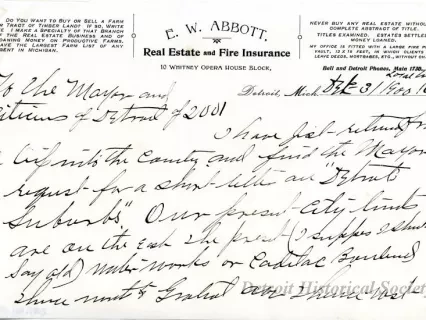 DO YOU WANT TO BUY OR SELL A FARM
OR TRACT OF TIMBER LAND? IF SO, WRITE
ME. I MAKE A SPECIALTY OF THAT BRANCH
OF THE REAL ESTATE BUSINESS AND OF
LOANING MONEY ON PRODUCTIVE FARMS.
HAVE THE LARGEST FARM LIST OF ANY
AGENT IN MICHIGAN.
E. W. ABBOTT,
Real Estate and Fire Insurance
10 WHITNEY OPERA HOUSE BLOCK,
NEVER BUY ANY REAL ESTATE WITHOUT
COMPLETE ABSTRACT OF TITLE.
TITLES EXAMINED. ESTATES SETTLED.
MONEY LOANED.
MY OFFICE IS FITTED WITH A LARGE FIRE
VAULT, 12 X 14 FEET, IN WHICH CLIENTS
LEAVE DEEDS, MORTGAGES, ETC., WITHOUT
Bell and Detroit Phones, Main 1738
Detroit, Mich. Dec 31 1900
To the Mayor and
Citizens of Detroit of 2001
I have just returned from
a trip into the County and find the Mayor
request for a short letter on "Detroit
Suburbs". Our present city limits
are on the East the present (I suppose I should
say old) Water works or Cadillac Boulevard
thence north to Gratiot ave thence west
Detroit Historical Society